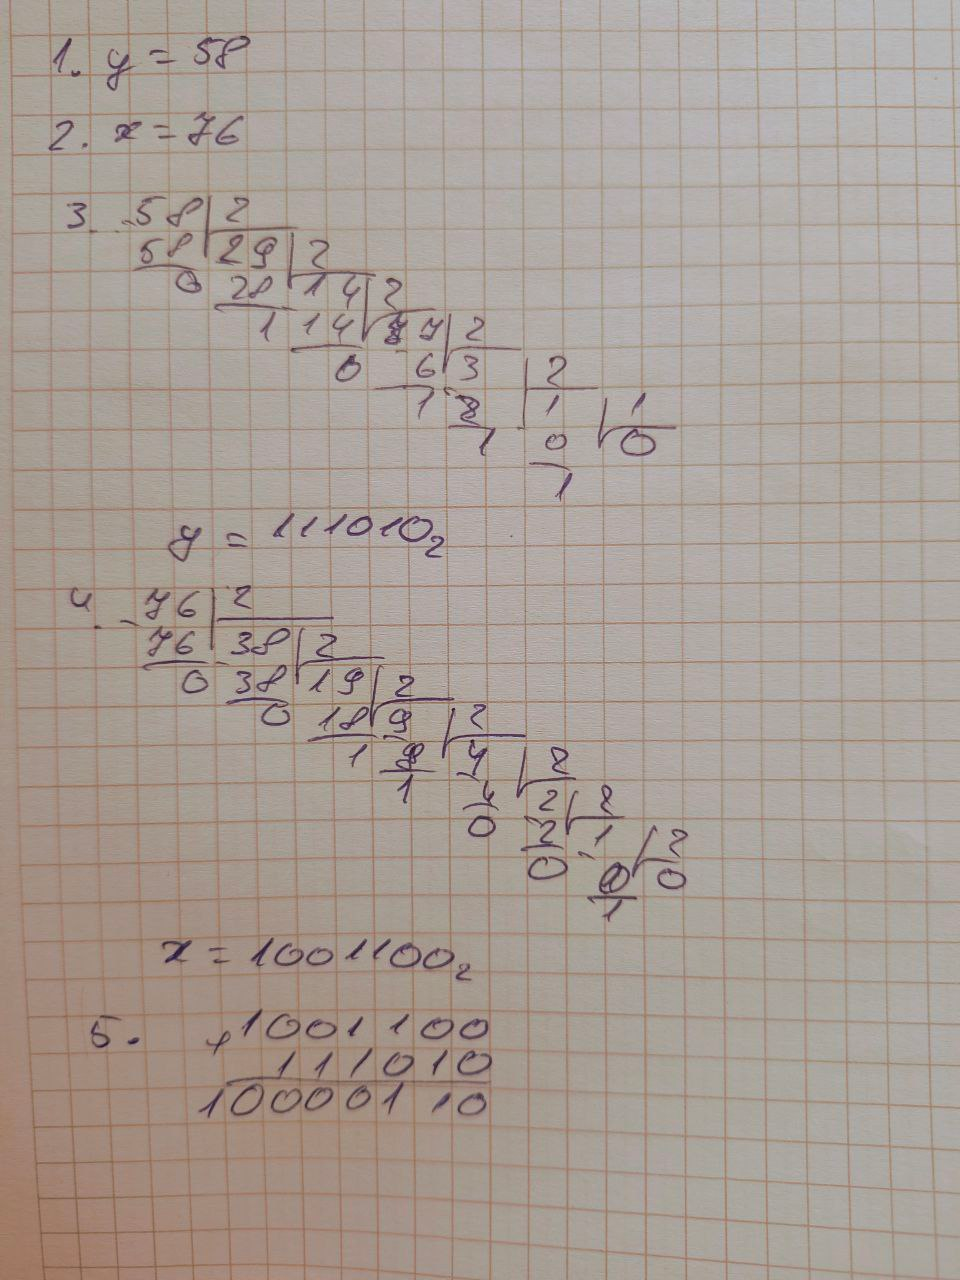 1. y = 58
2. x = 76
3. 58 2
58 29 2
0 28 14 2
1 14 7 2
0 6 3 2
1 2 1 1
1 0 0
1
y = 111010₂
4. 76 2
76 38 2
0 38 19 2
0 18 9 2
1 8 4 2
1 4 2 2
0 2 1 2
0 0 0
1
x = 1001100₂
5. + 1001100
111010
10000110